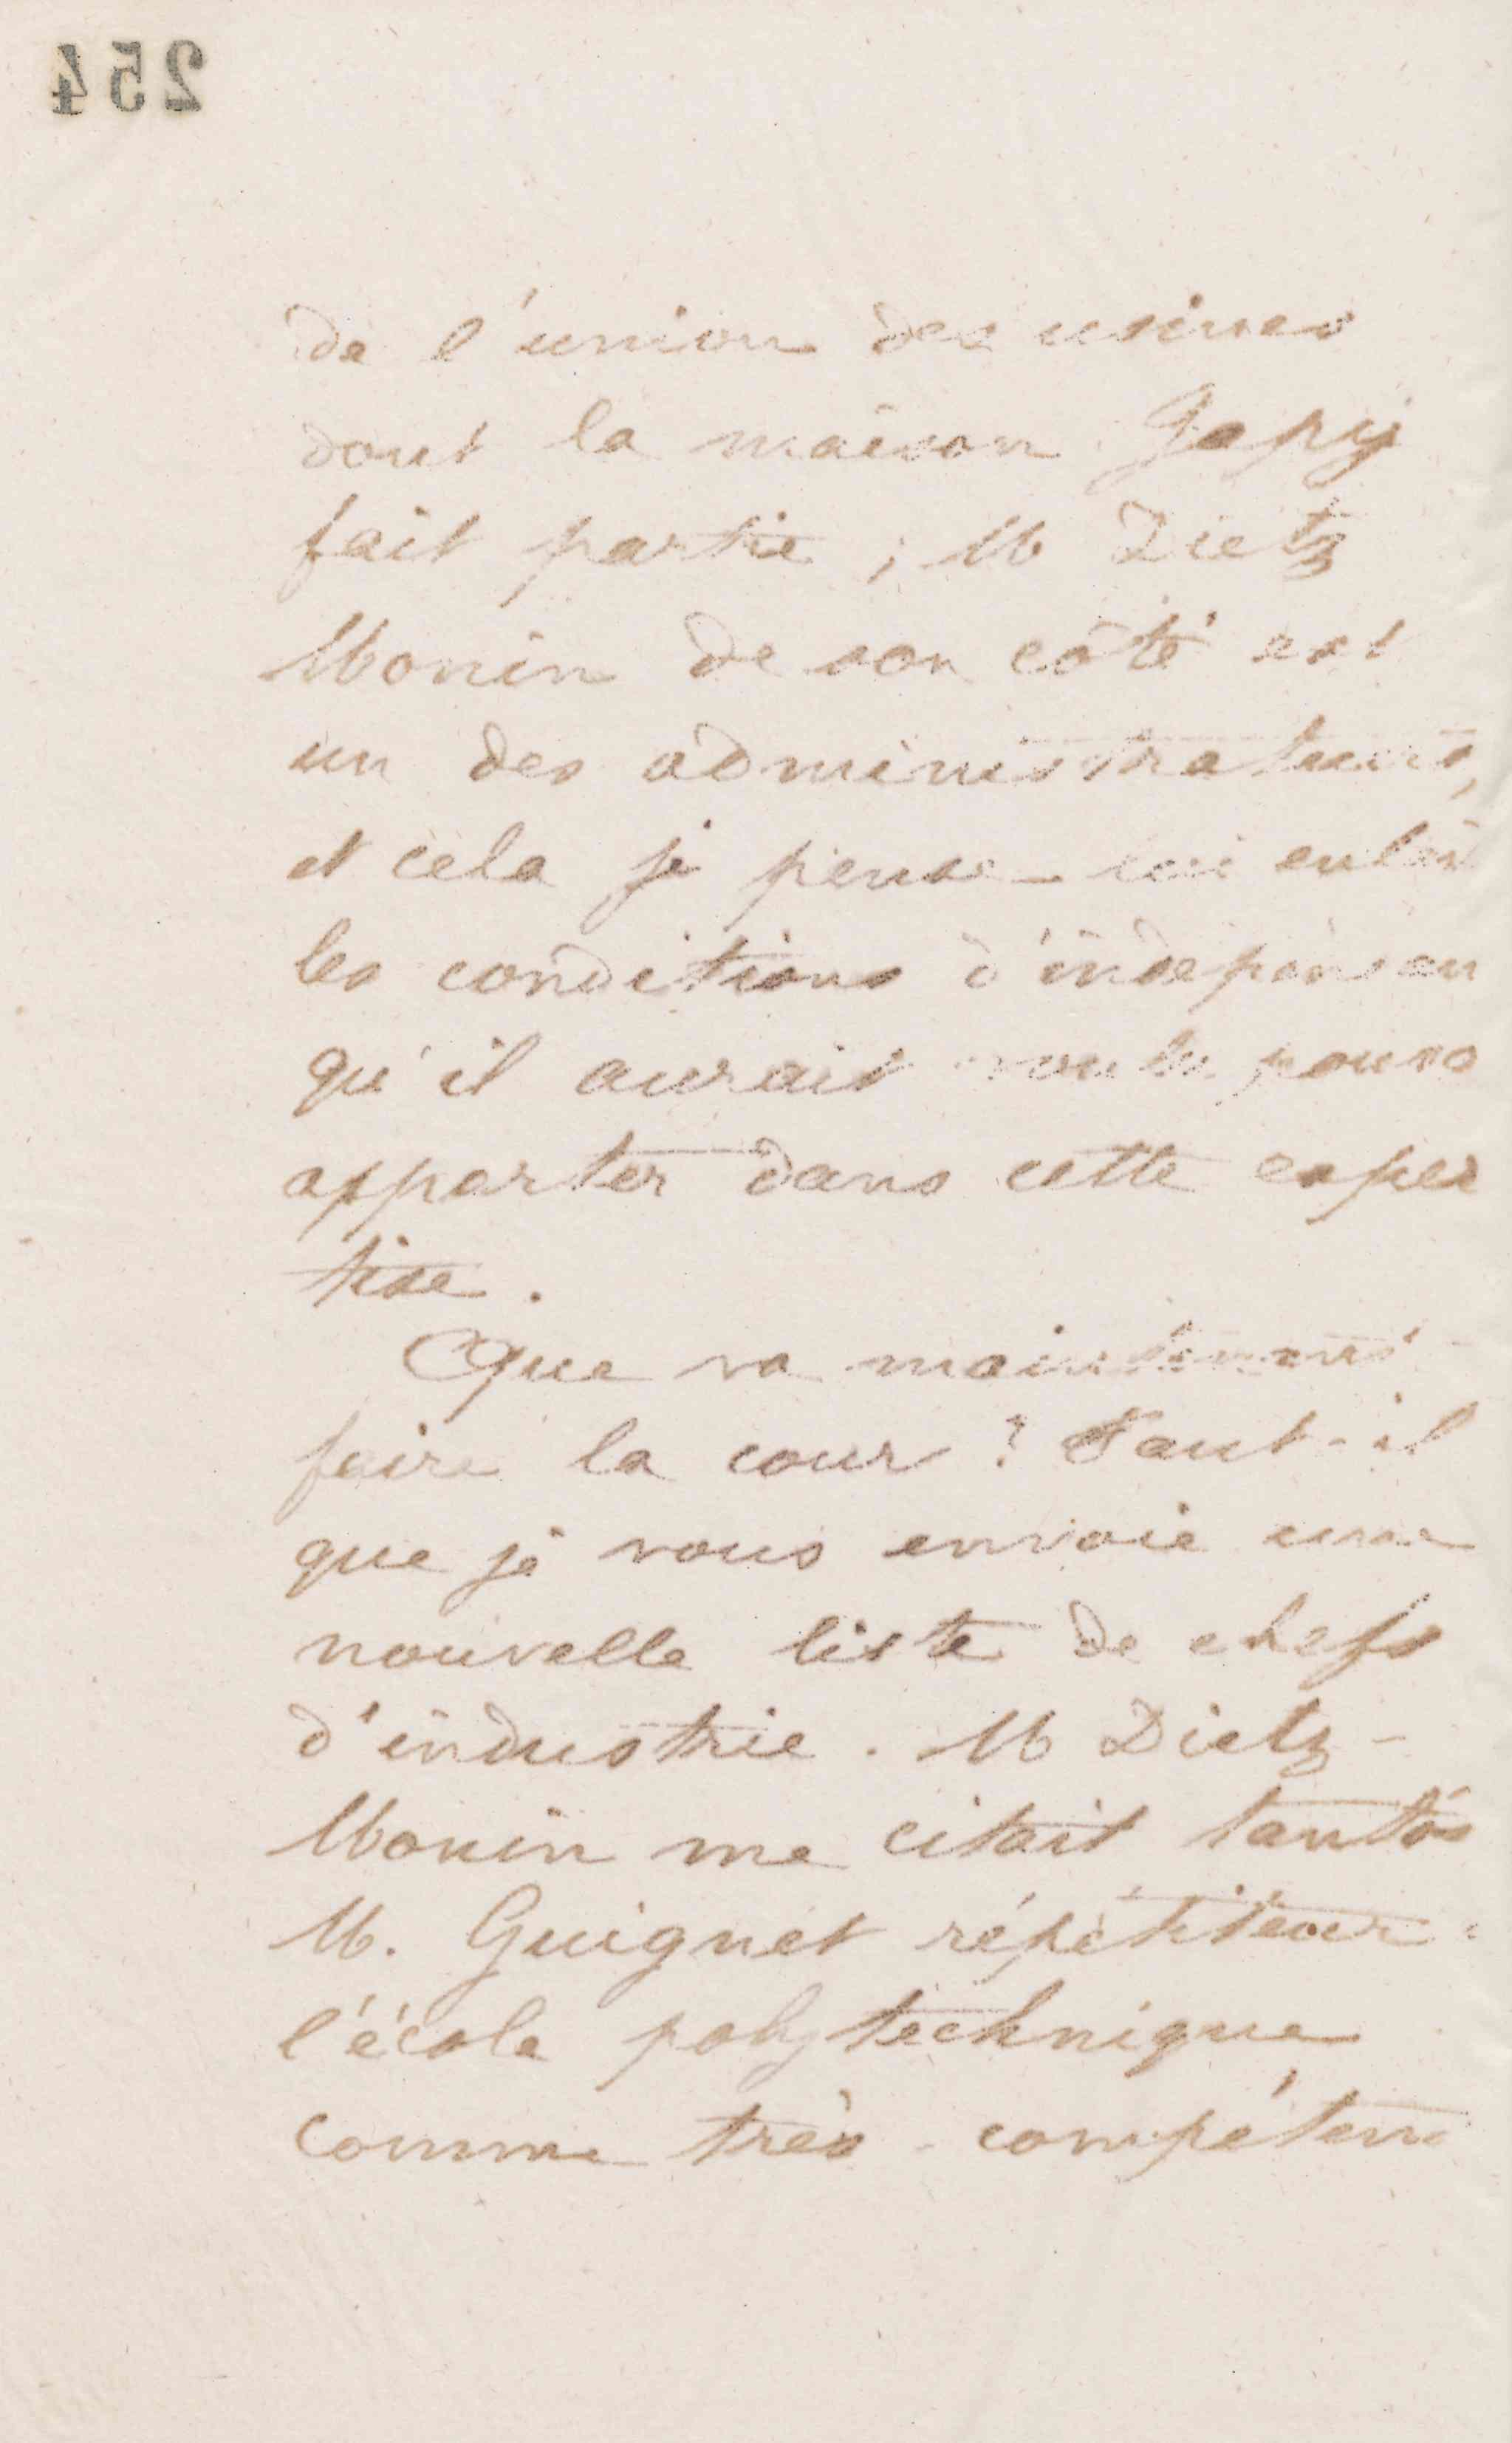 254
de l'union des usines
dont la maison Japy
fait partie ; M Dietz
Monin de son côté est
un des administrateurs,
et cela je pense lui enlèv
les conditions d'indépenden
qu'il aurait voulu pouvo
apporter dans cette exper
tise.
Que va maintenant
faire la cour ? Faut-il
que je vous envoie une
nouvelle liste de chefs
d'industrie. M Dietz-
Monin me citait tantôt
M. Guignet répétiteur
l'école polytechnique
comme très-compéten